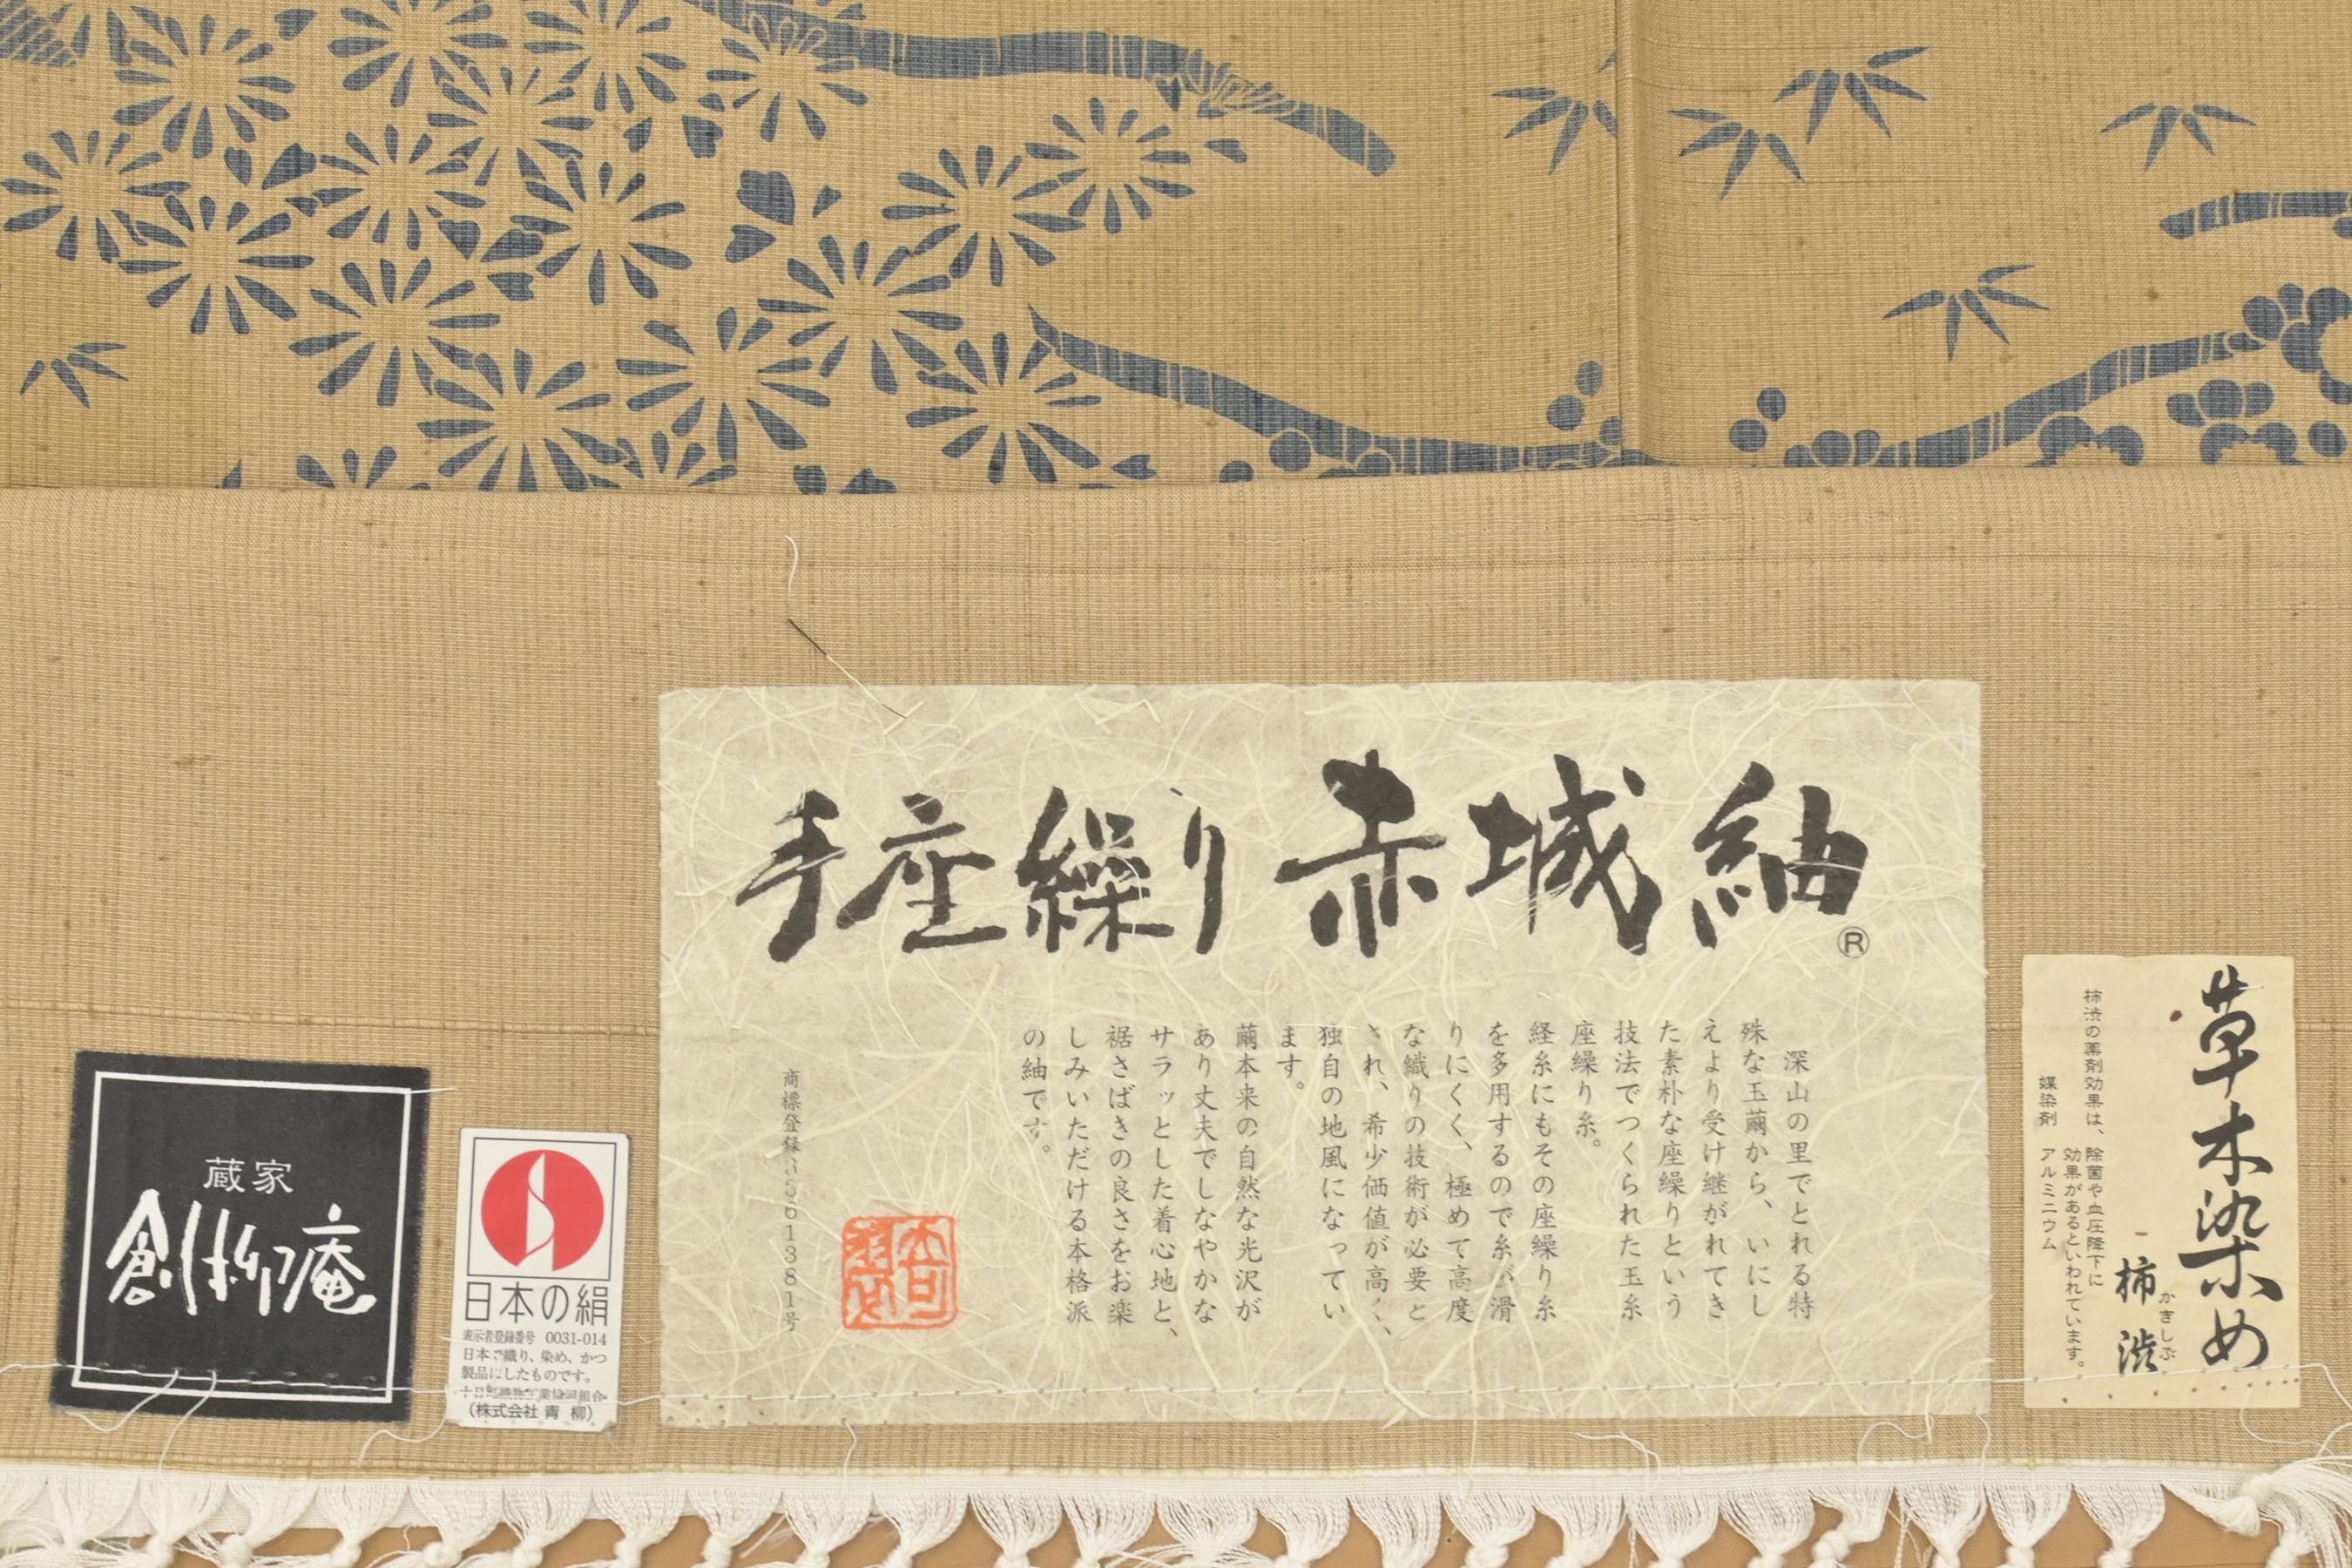 手座繰り 赤城紬
®
深山の里でとれる特
殊な玉繭から、いにし
えより受け継がれてき
た素朴な座繰りという
技法でつくられた玉糸
座繰り糸。
経糸にもその座繰り糸
を多用するので糸が滑
りにくく、極めて高度
な織りの技術が必要と
され、希少価値が高く、
独自の地風になってい
ます。
繭本来の自然な光沢が
あり丈夫でしなやかな
サラッとした着心地と、
裾さばきの良さをお楽
しみいただける本格派
の紬です。
商標登録3361381号
草木染め
柿渋
かきしぶ
柿渋の薬剤効果は、除菌や血圧降下に
効果があるといわれています。
媒染剤 アルミニウム
蔵家
日本の絹
表示者登録番号 0031-014
日本で織り、染め、かつ
製品にしたものです。
(株式会社 青柳)